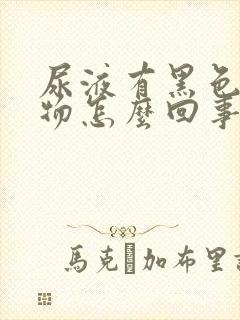 尿液有黑色
物怎麼回事
馬克·加布里